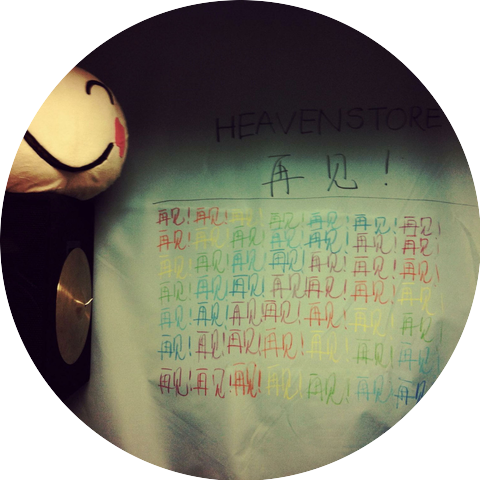 HEAVENSTORE
再见!
再见!再见!再见!再见!再见!再见!再见!
再见!再见!再见!再见!再见!再见!再见!
再见!再见!再见!再见!再见!再见!再见!
再见!再见!再见!再见!再见!再见!再见!
再见!再见!再见!再见!再见!再见!再见!
再见!再见!再见!再见!再见!再见!再见!
再见!再见!再见!再见!再见!再见!再见!
再见!再见!再见!再见!再见!再见!再见!